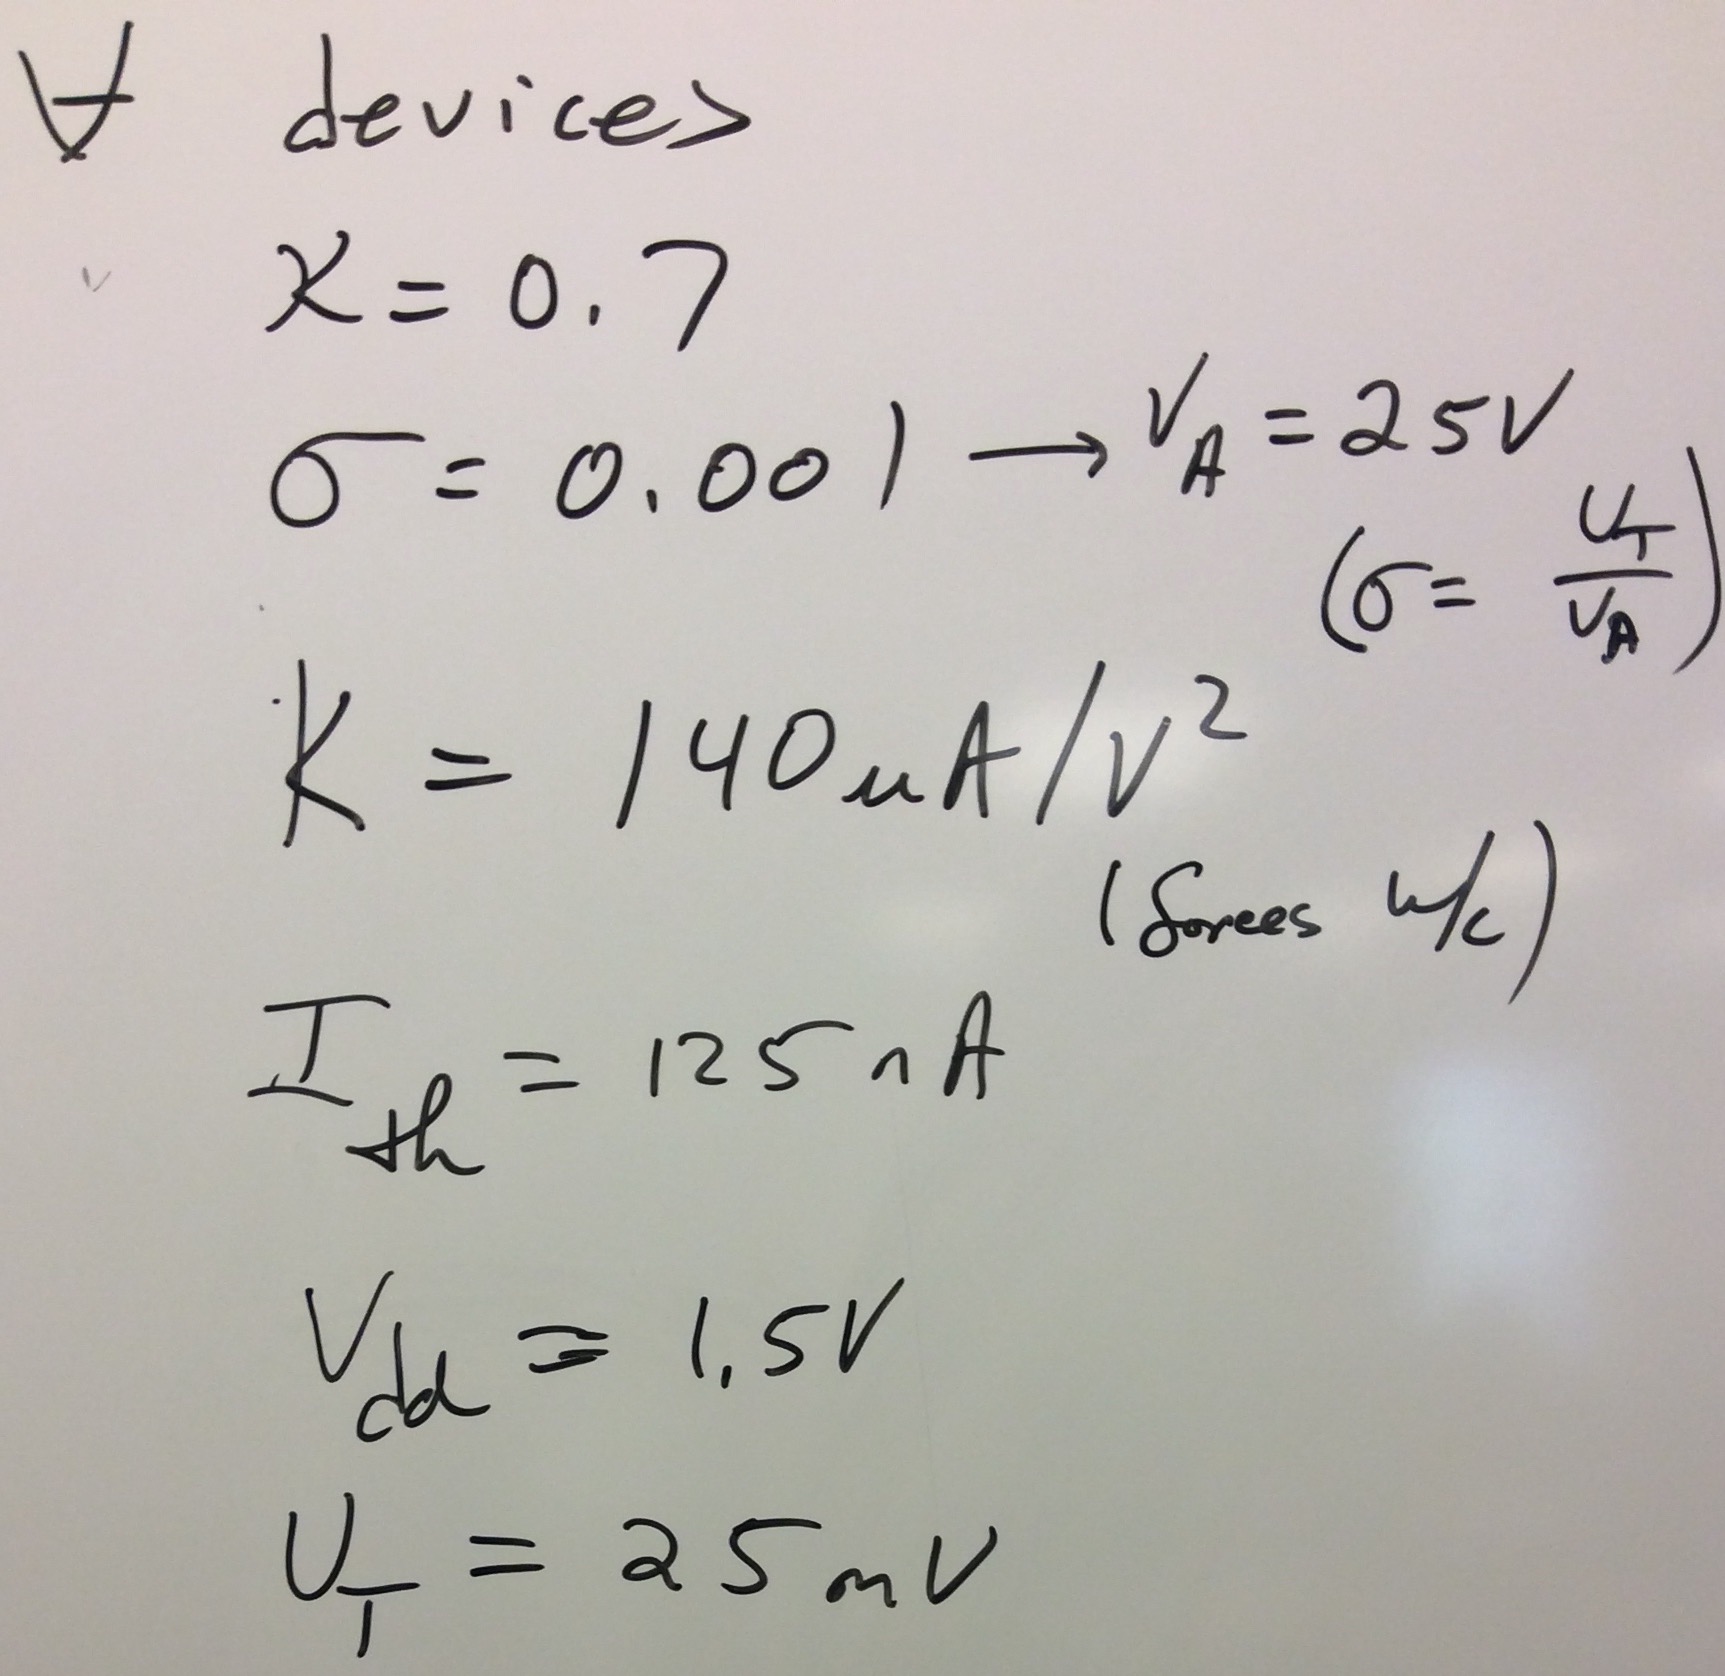 ∀ devices
κ = 0.7
σ = 0.001 → V_A = 25V
(σ = U_T / V_A)
K = 140 uA/V²
(forces W/L)
I_th = 125 nA
V_dd = 1.5V
U_T = 25mV